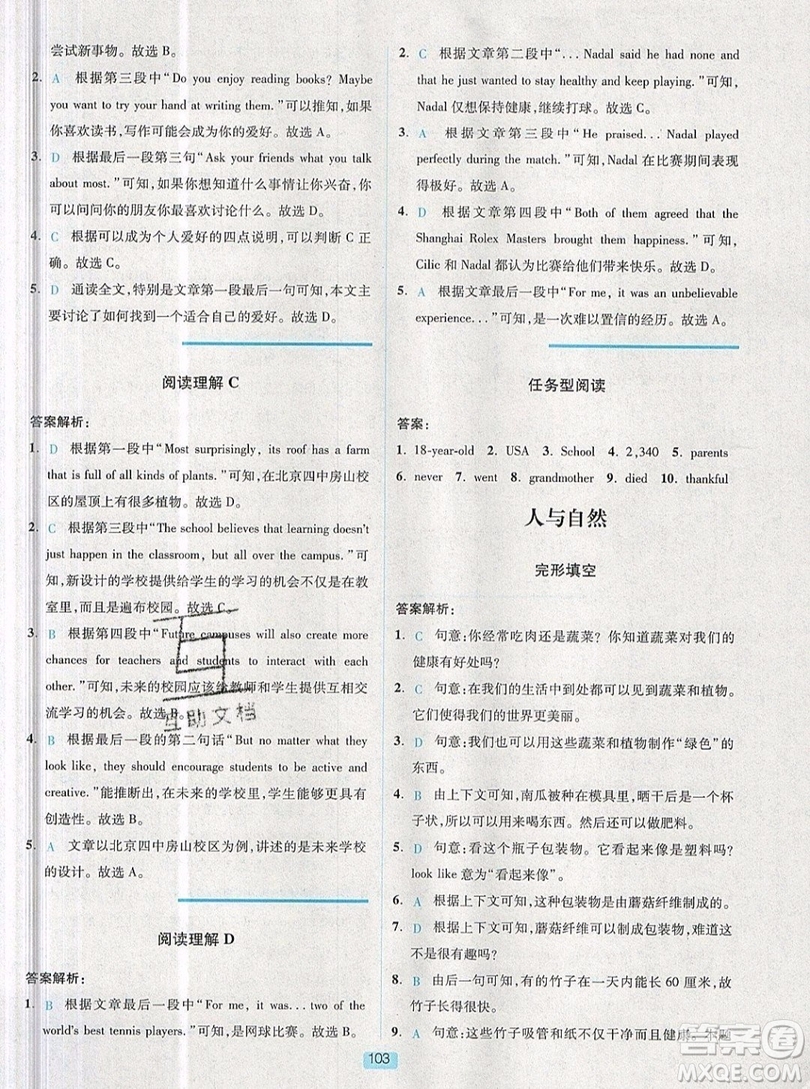 尝试新事物。故选 B。
2. A 根据第三段中“Do you enjoy reading books? Maybe
you want to try your hand at writing them.”可以推知,如果
你喜欢读书,写作可能会成为你的爱好。故选 A。
3. D 根据最后一段第三句“Ask your friends what you talk
about most.”可知,如果你想知道什么事情让你兴奋,你
可以问问你的朋友你最喜欢讨论什么。故选 D。
4. C 根据可以成为个人爱好的四点说明,可以判断 C 正
确。故选 C。
5. D 通读全文,特别是文章第一段最后一句可知,本文主
要讨论了如何找到一个适合自己的爱好。故选 D。
阅读理解 C
答案解析:
1. D 根据第一段中“Most surprisingly, its roof has a farm
that is full of all kinds of plants.”可知,在北京四中房山校
区的屋顶上有很多植物。故选 D。
2. C 根据第三段中“The school believes that learning doesn't
just happen in the classroom, but all over the campus.”可
知,新设计的学校提供给学生的学习的机会不仅是在教
室里,而且是遍布校园。故选 C。
3. B 根据第四段中“Future campuses will also create more
chances for teachers and students to interact with each
other.”可知,未来的校园应该给教师和学生提供互相交
流学习的机会。故选 B。
4. B 根据最后一段的第二句话“But no matter what they
look like, they should encourage students to be active and
creative.”能推断出,在未来的学校里,学生能够更具有
创造性。故选 B。
5. A 文章以北京四中房山校区为例,讲述的是未来学校
的设计。故选 A。
阅读理解 D
答案解析:
1. B 根据文章最后一段中“For me, it was ... two of the
world's best tennis players.”可知,是网球比赛。故选 B。
2. C 根据文章第二段中“... Nadal said he had none and
that he just wanted to stay healthy and keep playing.”可知,
Nadal 仅想保持健康,继续打球。故选 C。
3. A 根据文章第三段中“He praised... Nadal played
perfectly during the match.”可知,Nadal 在比赛期间表现
得极好。故选 A。
4. D 根据文章第四段中“Both of them agreed that the
Shanghai Rolex Masters brought them happiness.”可知,
Cilic 和 Nadal 都认为比赛给他们带来了幸福。故选 D。
5. A 根据文章最后一段中“For me, it was an unbelievable
experience...”可知,是一次难以置信的经历。故选 A。
任务型阅读
答案:
1. 18-year-old 2. USA 3. School 4. 2,340 5. parents
6. never 7. went 8. grandmother 9. died 10. thankful
人与自然
完形填空
答案解析:
1. C 句意:你经常吃肉还是蔬菜?你知道蔬菜对我们的
健康有好处吗?
2. B 句意:在我们的生活中到处都可以见到蔬菜和植物。
它们使得我们的世界更美丽。
3. D 句意:我们也可以用这些蔬菜和植物制作“绿色”的
东西。
4. B 由上下文可知,南瓜被种在模具里,晒干后是一个杯
子形状,可以用来喝东西。用完后可以做成肥料。
5. D 句意:看这个瓶子包装物。它看起来像一块面包!
look like 意为“看起来像”。
6. A 根据上下文可知,这种包装物由蘑菇纤维制成的。
7. D 根据上下文可知,蘑菇纤维可以制成包装物,难道这
不是很有趣吗?
8. B 由后一句可知,有的竹子在一天内能长 60 厘米,故
竹子生长得很快。
9. A 句意:这些竹子吸管和纸不仅干净而且健康。
互助文档
103
答案圈
MXQE.COM